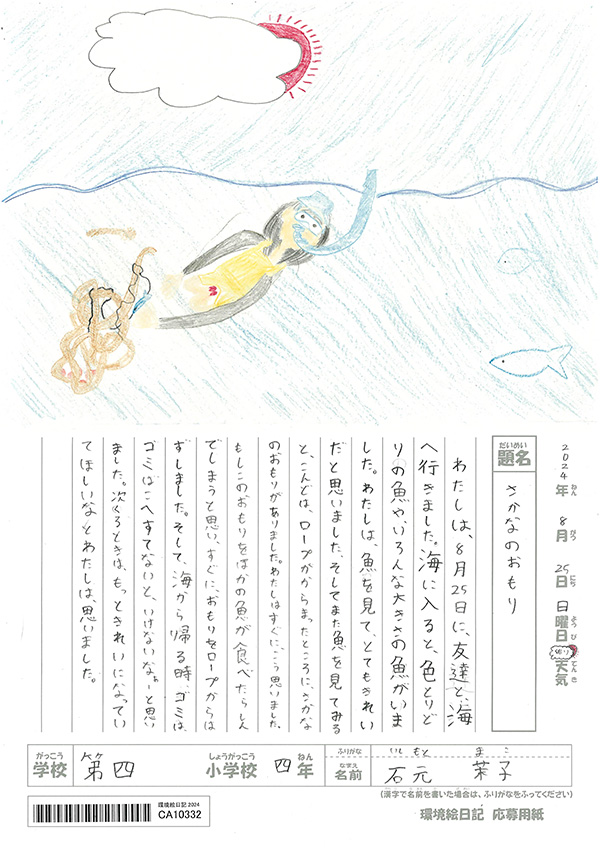 2024年 8月 25日 日曜日 くもり 天気
ねん がつ にち ようび てんき
だいめい
題名
さかなのおもり
わたしは、8月25日に、友達と、海
へ行きました。海に入ると、色とりど
りの魚や、いろんな大きさの魚がいま
した。わたしは、魚を見て、とてもきれい
だと思いました。そしてまた魚を見てみる
と、こんどは、ロープがからまったところに、さかな
のおもりがありました。わたしはすぐに、こう思いました。
もしこのおもりをほかの魚が食べたらしん
でしまうと思い、すぐに、おもりをロープからは
ずしました。そして、海から帰る時、ゴミは、
ゴミばこへすてないと、いけないな。ーと思い
ました。次くるときは、もっときれいになってい
てほしいなとわたしは、思いました。
がっこう
学校 第四
しょうがっこう ねん
小学校 四年
ふりがな いし もと ま こ
なまえ
名前 石元 茉子
(漢字で名前を書いた場合は、ふりがなをふってください)
環境絵日記 2024
CA10332
環境絵日記 応募用紙